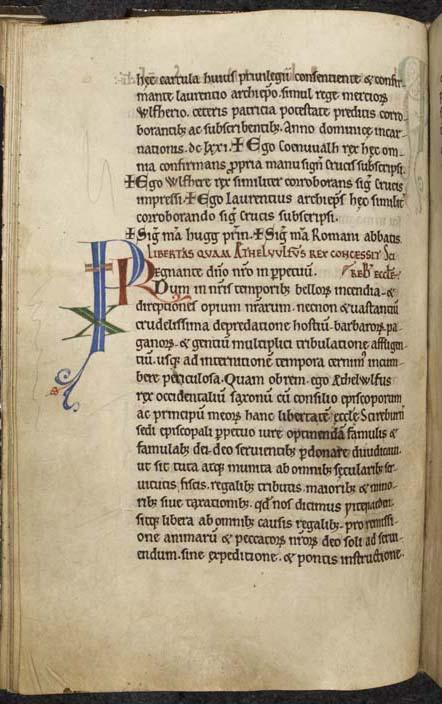 hęc cartula huius priuilegii consentiente & confir-
mante laurentio archiepo. simul rege merciorꝫ
Wlfherio. ceteris patricia potestate preditis corro-
borantibꝫ ac subscribentibꝫ. Anno dominicę incar-
nationis. dc.lxxi. ✝ Ego Coenuualh rex hęc om-
nia confirmans ꝓpria manu signū crucis subscripsi.
✝ Ego Wlfhere rex similiter corroborans sig̅ crucis
impressi. ✝ Ego Laurentius archiep̅s hęc similit̅
corroborando sig̅ crucis subscripsi.
✝ Sig̅ m̅a hugg prin̅. ✝ Sig̅ m̅a Romani abbatis.
LIBERTAS QUAM ATHELUULFUS REX CONCESSIT Sci
REgnante dn̅o nr̅o in ꝑpetuū. REB̅ ECCLE.
Dum in nr̅is temporibꝫ bellorꝫ incendia. &
direptiones opium nr̅arum. necnon & uastantiū
crudelissima depredatione hostiū. barbarorꝫ pa-
ganorꝫ. & gentiū multiplici tribulatione affligen-
tiū. usqꝫ ad internitionē tempora cernim᷒ incum-
bere periculosa. Quam obrem. ego Æthelwlfus
rex occidentaliū saxonū cū consilio episcoporum
ac principū meorꝫ hanc libertatē eccle Scireburn̅
sedi episcopali ꝑpetuo iure optinendā famulis &
famulabꝫ dei. deo seruientibꝫ ꝑdonare diiudicaui.
ut sit tuta atqꝫ munita ab omnibꝫ sęcularibꝫ ser-
uitutis fiscis. regalibꝫ tributis maioribꝫ & mino-
ribꝫ siue taxationibꝫ. qd̅ nos dicimus
sitqꝫ libera ab omnibꝫ causis regalibꝫ. pro remissi-
one animarū & peccatorꝫ nr̅orꝫ deo soli ad serui-
endum. sine expeditione. & pontis instructione.